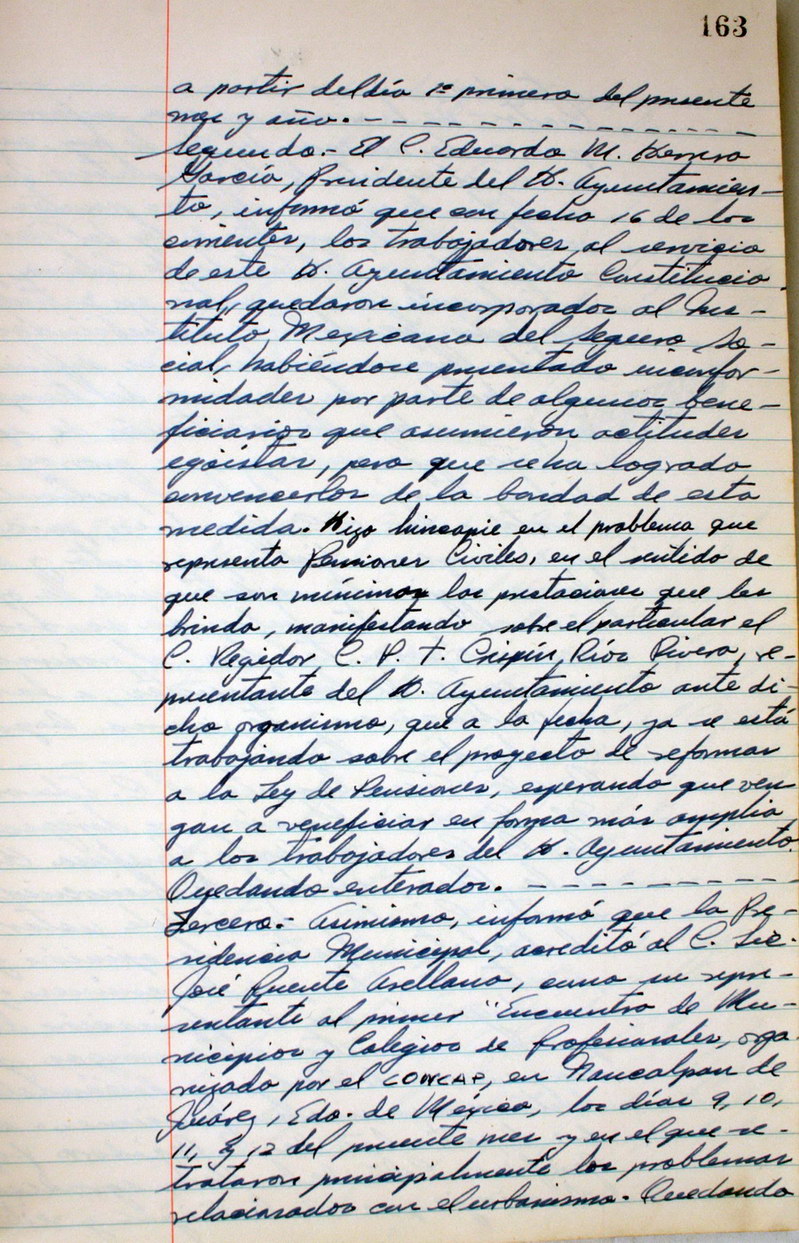 163
a partir del día 1º primero del presente
mes y año. - - - - - - - - - - - - - -
Segundo.- El C. Eduardo M. Herrera
García, Presidente del H. Ayuntamien-
to, informó que con fecha 16 de los
corrientes, los trabajadores al servicio
de este H. Ayuntamiento Constitucio
nal, quedaron incorporados al Ins-
tituto Mexicano del Seguro So-
cial, habiéndose presentado inconfor-
midades por parte de algunos bene-
ficiarios que asumieron actitudes
egoístas, pero que se ha logrado
convencerlos de la bondad de esta
medida. Hizo hincapie en el problema que
representa Pensiones Civiles, en el sentido de
que son mínimas las prestaciones que les
brinda, manifestando sobre el particular el
C. Regidor, C. P. T. Crispín Ríos Rivera, re-
presentante del H. Ayuntamiento ante di-
cho organismo, que a la fecha, ya se está
trabajando sobre el proyecto de reformas
a la Ley de Pensiones, esperando que ven
gan a veneficiar en forma más amplia
a los trabajadores del H. Ayuntamiento.
Quedando enterados. - - - - - - - - - -
Tercero.- Asimismo, informó que la Pre-
sidencia Municipal, acreditó al C. Lic.
José Puente Arellano, como su repre-
sentante al primer "Encuentro de Mu-
nicipios y Colegios de Profesionales, orga
nizado por el CONCAP, en Naucalpan de
Juárez, Edo. de México, los días 9, 10,
11, y 12 del presente mes y en el que se
trataron principalmente los problemas
relacionados con el urbanismo. Quedando